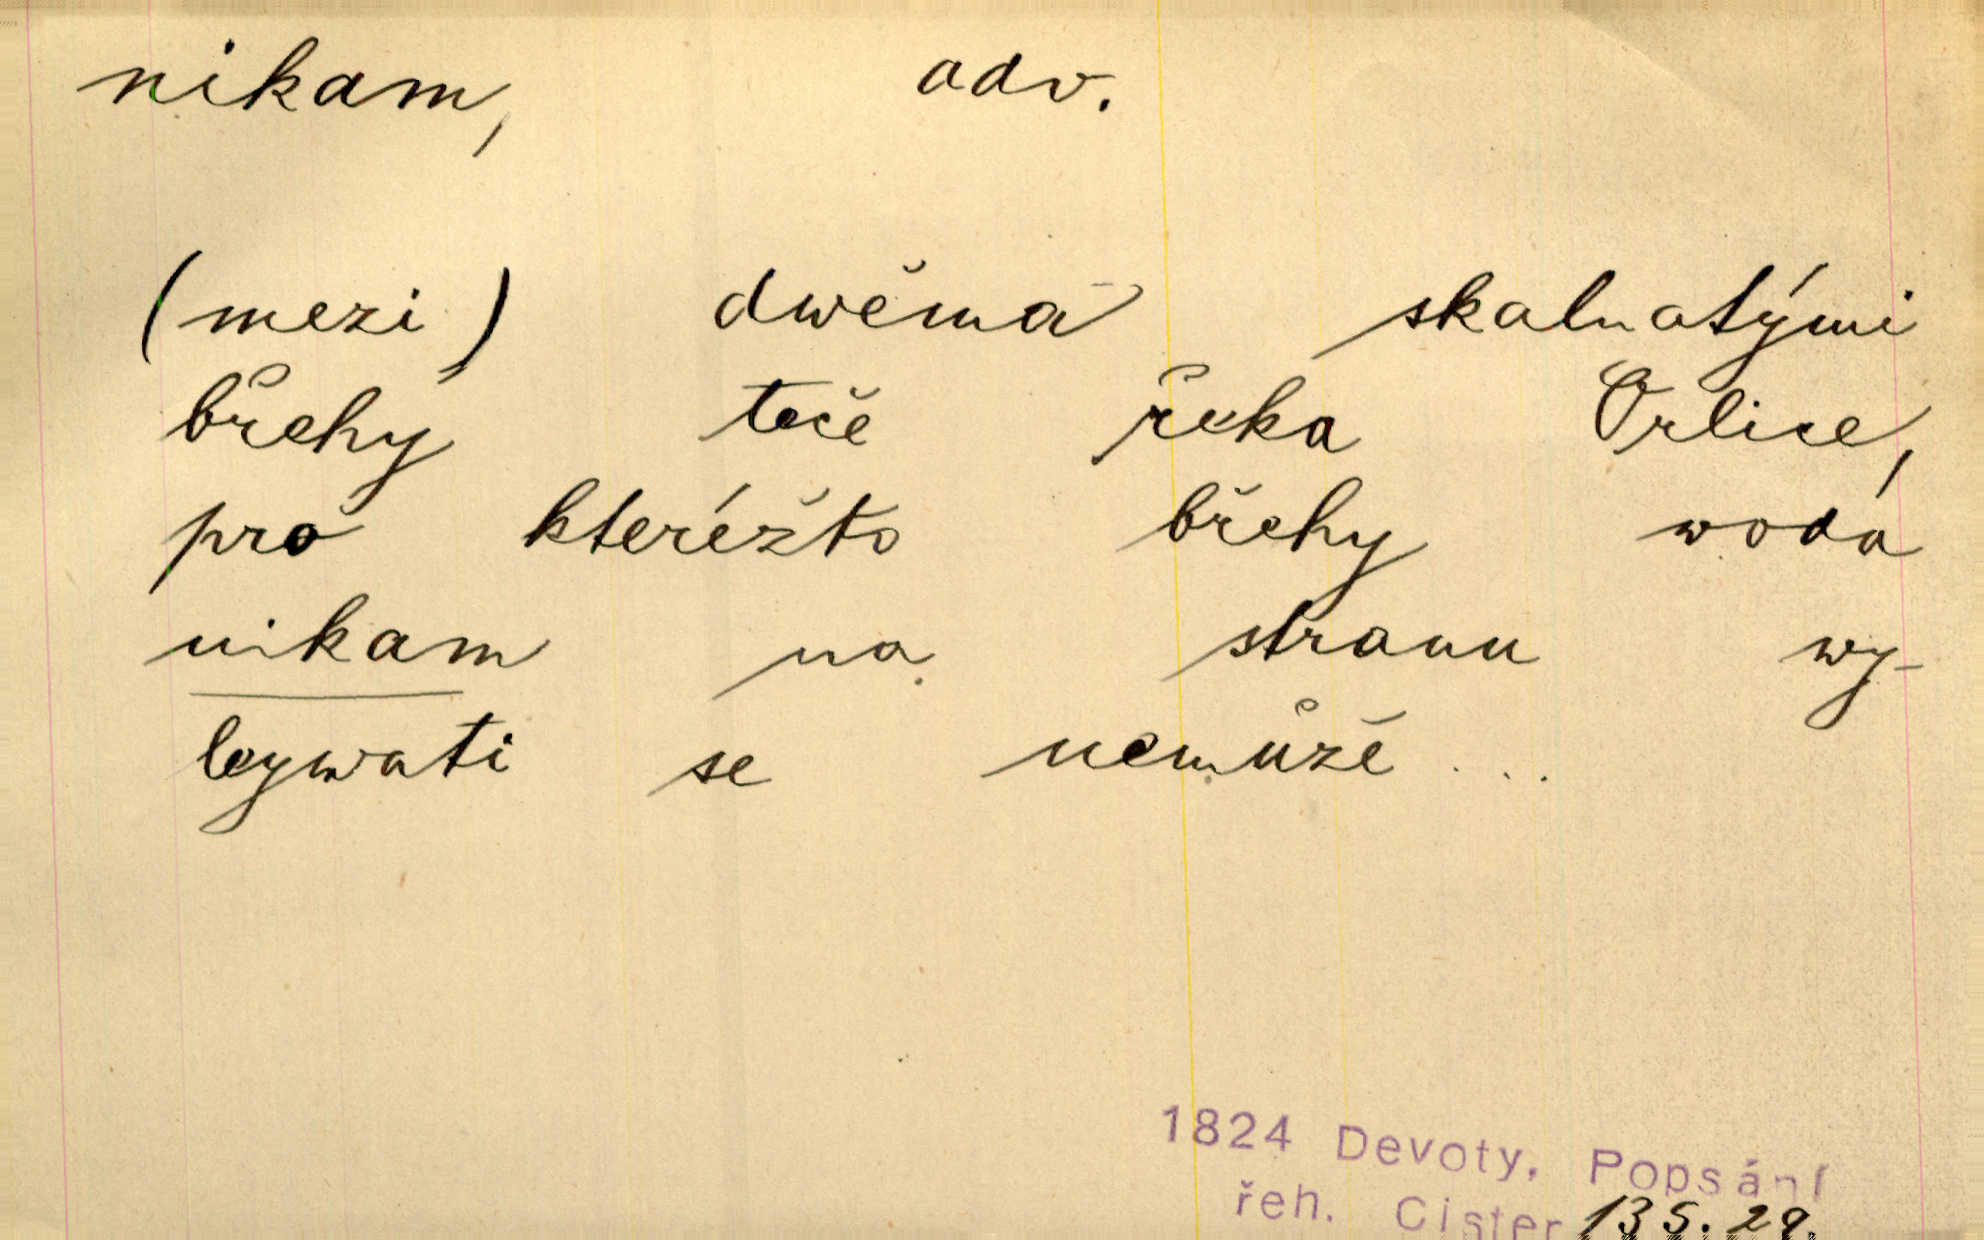 nikam, adv.
(mezi) dwěma skalnatými
břehy teče řeka Orlice,
pro kterěžto břehy woda
nikam na stranu wy-
legwati se nemůže ...
1824 Devoty, Popsání
řeh. Cister 135.29.